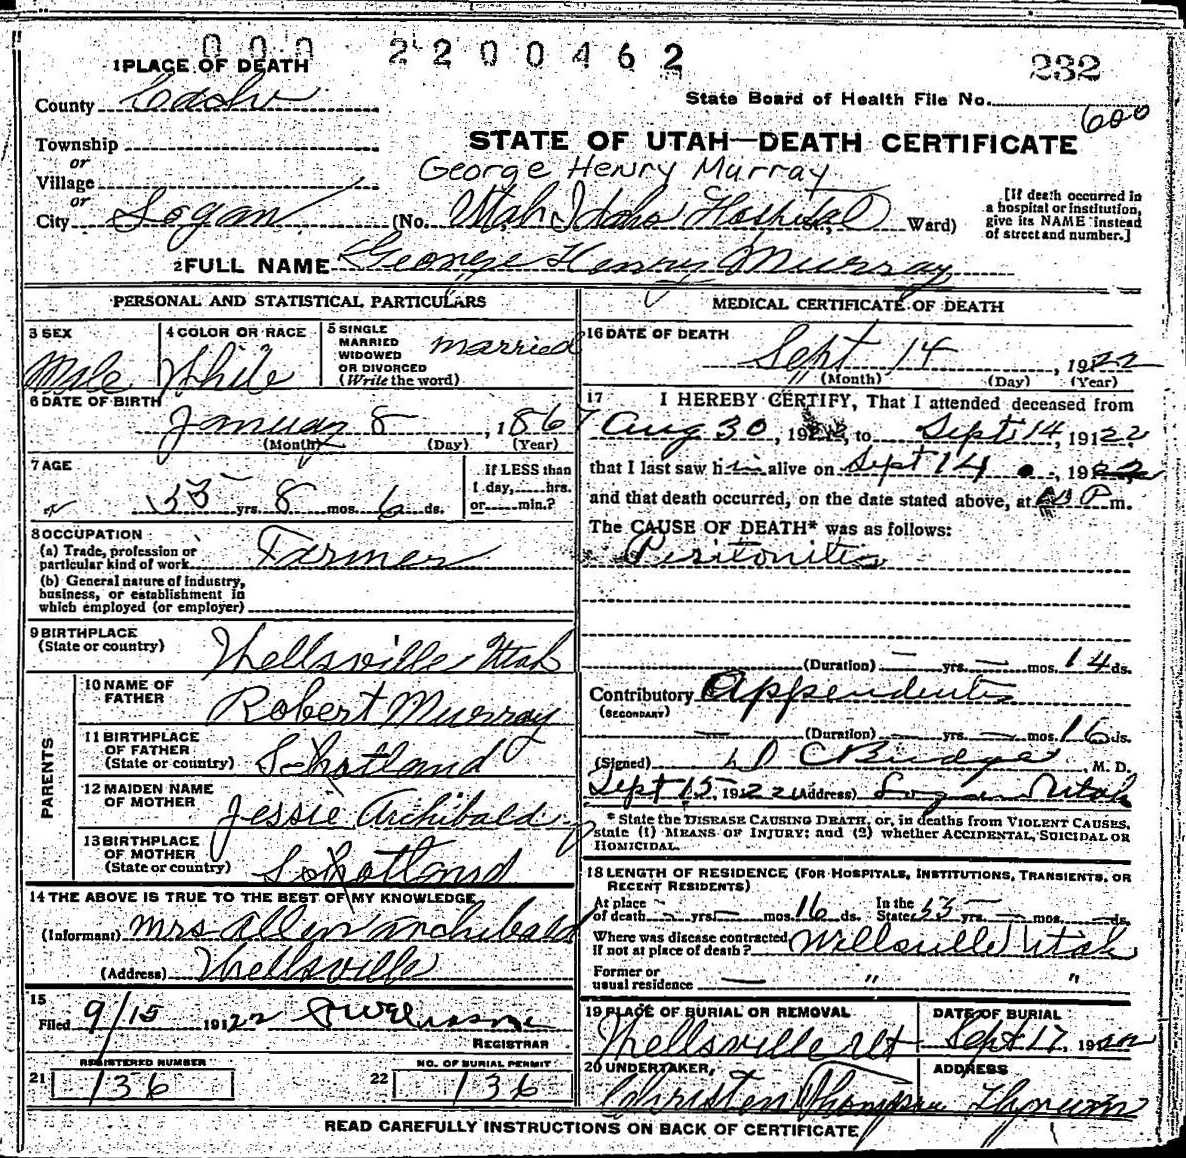 000 2200462
232
1 PLACE OF DEATH
County Cache
State Board of Health File No.
600
Township
or
Village
or
City Logan
STATE OF UTAH—DEATH CERTIFICATE
George Henry Murray
(No. Utah Idaho Hospital St., Ward)
[If death occurred in a hospital or institution, give its NAME instead of street and number.]
2 FULL NAME George Henry Murray
PERSONAL AND STATISTICAL PARTICULARS
3 SEX
Male
4 COLOR OR RACE
White
5 SINGLE
MARRIED
WIDOWED
OR DIVORCED
(Write the word)
married
6 DATE OF BIRTH
January 8, 1867
(Month) (Day) (Year)
7 AGE
55 yrs. 8 mos. 6 ds.
If LESS than
1 day, hrs.
or min.?
8 OCCUPATION
(a) Trade, profession or
particular kind of work Farmer
(b) General nature of industry,
business, or establishment in
which employed (or employer)
9 BIRTHPLACE
(State or country) Wellsville Utah
PARENTS
10 NAME OF
FATHER Robert Murray
11 BIRTHPLACE
OF FATHER
(State or country) Scotland
12 MAIDEN NAME
OF MOTHER Jessie Archibald
13 BIRTHPLACE
OF MOTHER
(State or country) Scotland
14 THE ABOVE IS TRUE TO THE BEST OF MY KNOWLEDGE
(Informant) Mrs Allen Archibald
(Address) Wellsville
15
Filed 9/15 1922
REGISTRAR
REGISTERED NUMBER
21 136
NO. OF BURIAL PERMIT
22 136
MEDICAL CERTIFICATE OF DEATH
16 DATE OF DEATH
Sept 14, 1922
(Month) (Day) (Year)
17 I HEREBY CERTIFY, That I attended deceased from
Aug 30, 1922, to Sept 14, 1922
that I last saw him alive on Sept 14, 1922
and that death occurred, on the date stated above, at P m.
The CAUSE OF DEATH* was as follows:
Peritonitis
(Duration) — yrs. — mos. 14 ds.
Contributory Appendicitis
(SECONDARY)
(Duration) — yrs. — mos. 16 ds.
(Signed) D C Budge, M. D.
Sept 15, 1922 (Address) Logan Utah
* State the DISEASE CAUSING DEATH, or, in deaths from VIOLENT CAUSES, state (1) MEANS OF INJURY; and (2) whether ACCIDENTAL, SUICIDAL OR HOMICIDAL.
18 LENGTH OF RESIDENCE (FOR HOSPITALS, INSTITUTIONS, TRANSIENTS, OR RECENT RESIDENTS)
At place
of death — yrs. — mos. 16 ds. In the State 55 yrs. — mos. — ds.
Where was disease contracted
if not at place of death? Wellsville Utah
Former or
usual residence — " "
19 PLACE OF BURIAL OR REMOVAL
Wellsville Ut
DATE OF BURIAL
Sept 17, 1922
20 UNDERTAKER,
ADDRESS
Hyrum
READ CAREFULLY INSTRUCTIONS ON BACK OF CERTIFICATE